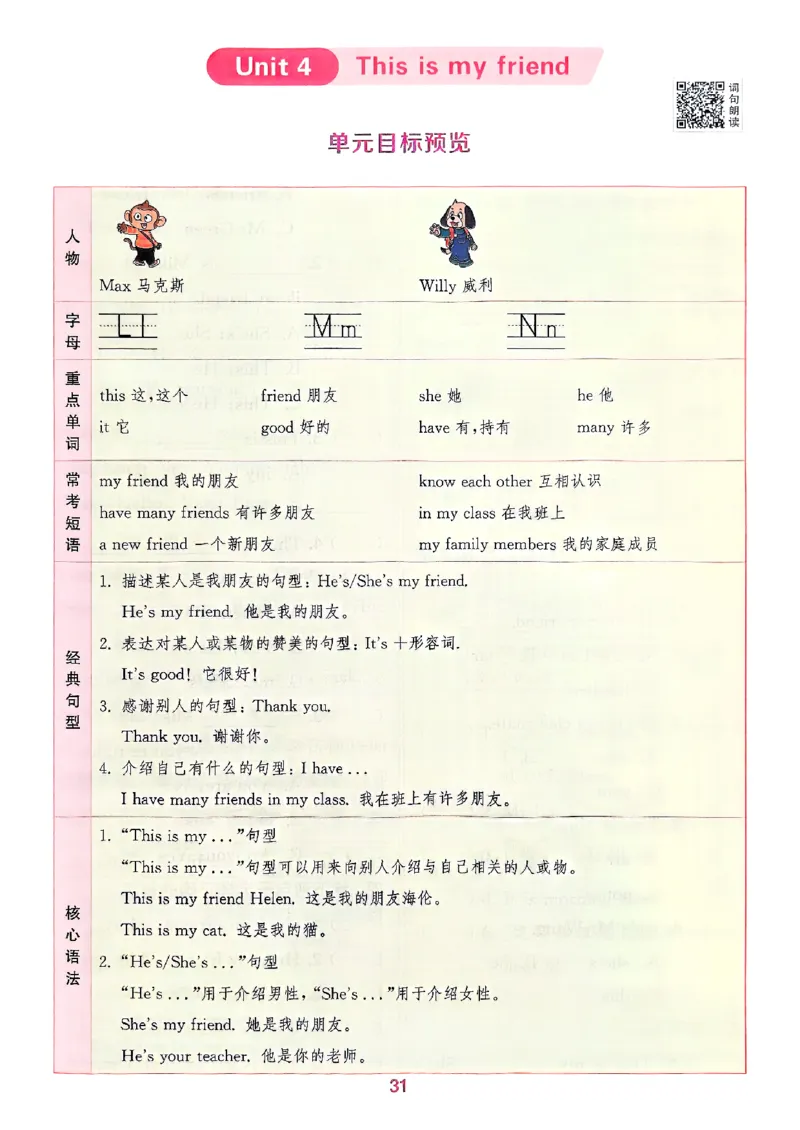 Unit 4 This is my friend
词句朗读
单元目标预览
人物
Max 马克斯 Willy 威利
字母
Ll Mm Nn
重点单词
this 这,这个 friend 朋友 she 她 he 他
it 它 good 好的 have 有,持有 many 许多
常考短语
my friend 我的朋友 know each other 互相认识
have many friends 有许多朋友 in my class 在我班上
a new friend 一个新朋友 my family members 我的家庭成员
经典句型
1. 描述某人是我朋友的句型:He's/She's my friend.
He's my friend. 他是我的朋友。
2. 表达对某人或某物的赞美的句型:It's +形容词.
It's good! 它很好!
3. 感谢别人的句型:Thank you.
Thank you. 谢谢你。
4. 介绍自己有什么的句型:I have ...
I have many friends in my class. 我在班上有许多朋友。
核心语法
1. “This is my ...”句型
“This is my ...”句型可以用来向别人介绍与自己相关的人或物。
This is my friend Helen. 这是我的朋友海伦。
This is my cat. 这是我的猫。
2. “He's/She's ...”句型
“He's ...”用于介绍男性,“She's ...”用于介绍女性。
She's my friend. 她是我的朋友。
He's your teacher. 他是你的老师。
31